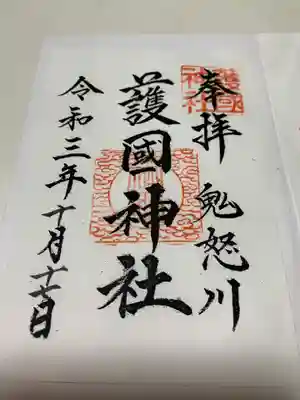 奉拝 鬼怒川
護國神社
令和三年十月十七日
護國神社